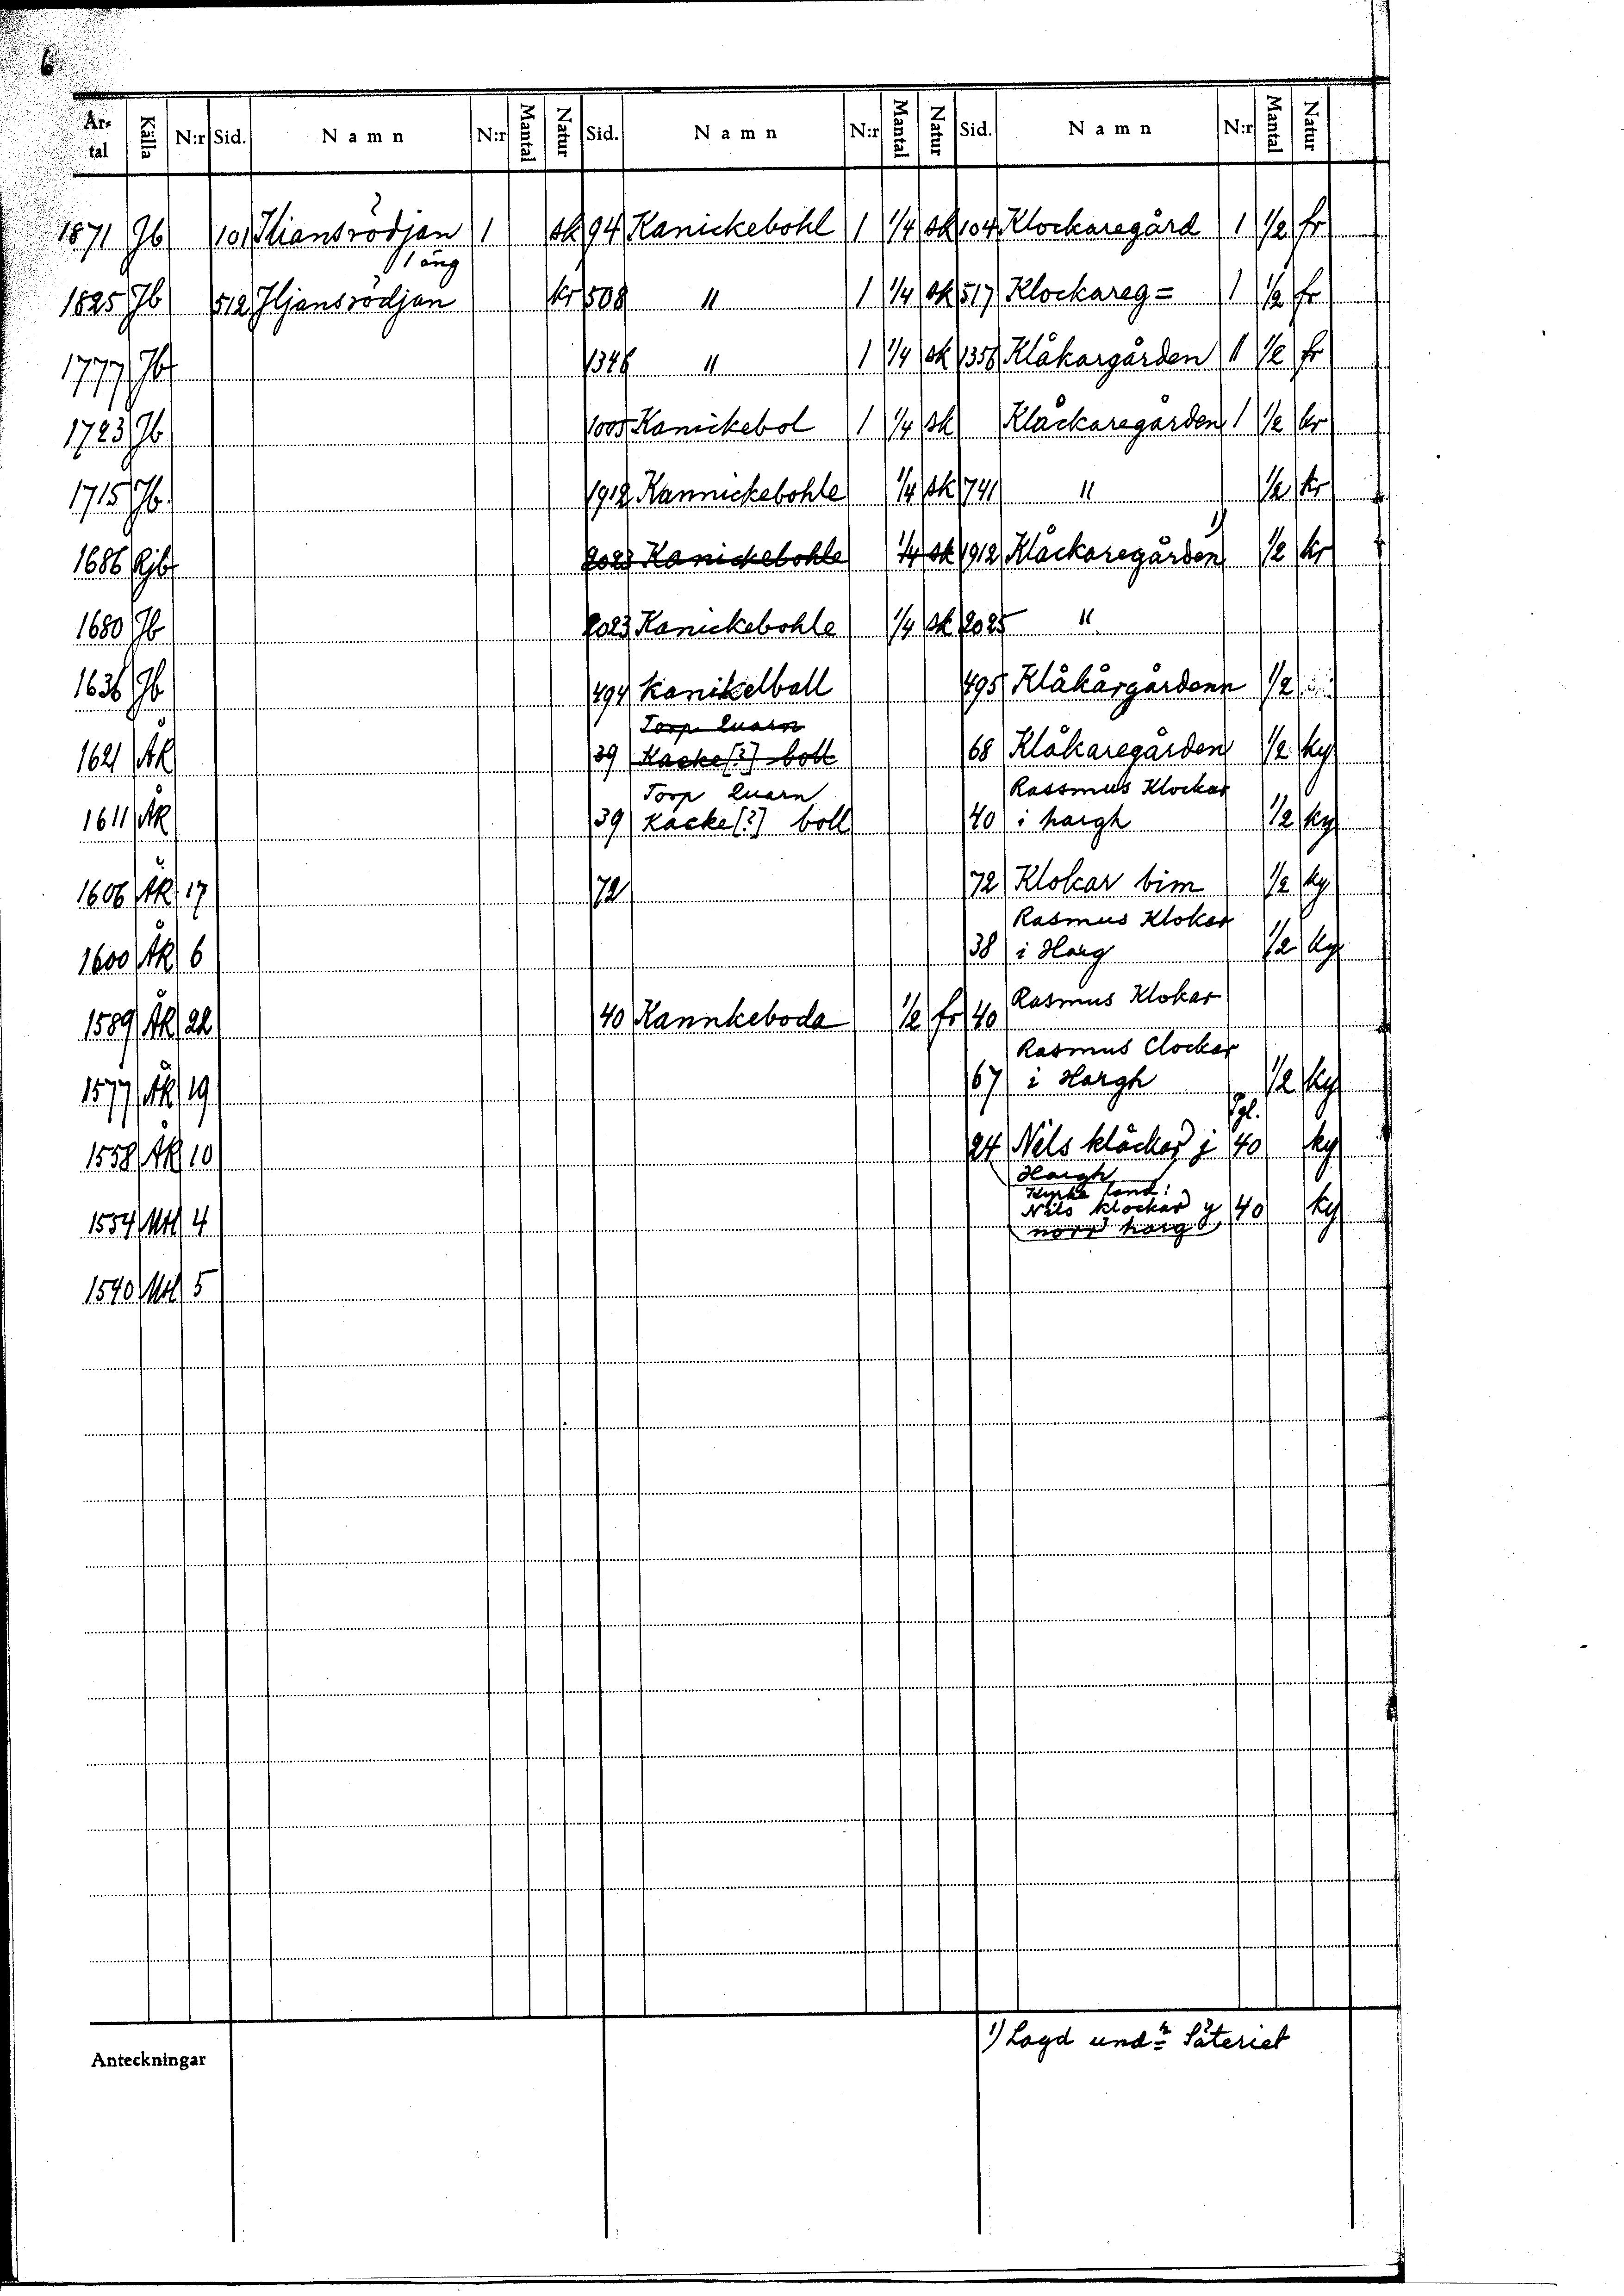 6
År-tal Källa N:r Sid. Namn N:r Mantal Natur Sid. Namn N:r Mantal Natur Sid. Namn N:r Mantal Natur
1871 Jb 101 Iliansrödjan 1 sk 94 Kanickebohl 1 1/4 sk 104 Klockaregård 1 1/2 fr
1 äng
1825 Jb 512 Iljansrödjan kr 508 " 1 1/4 sk 517 Klockareg= 1 1/2 fr
1777 Jb 1346 " 1 1/4 sk 1356 Klåkargården " 1/2 fr
1723 Jb 1005 Kanickebol 1 1/4 sk Klåckaregården 1 1/2 kr
1715 Jb. 1912 Kannickebohle 1/4 sk 741 " 1/2 kr
1686 Rjb 2023 Kanickebohle 1/4 sk 1912 Klåckaregården 1) 1/2 kr
1680 Jb 2023 Kanickebohle 1/4 sk 2025 "
1636 Jb 494 Kanikelball 495 Klåkårgårdenn 1/2
Torp Quarn
1621 ÅK 39 Kacke[?] boll 68 Klåkaregården 1/2 ky
Torp Quarn Rassmus Klockar
1611 ÅK 39 Kacke[?] boll 40 i hargh 1/2 ky
1606 ÅK 17 72 72 Klokar bim 1/2 ky
Rasmus Klokar
1600 ÅK 6 38 i Harg 1/2 ky
1589 ÅK 22 40 Kannkeboda 1/2 fr 40 Rasmus Klokar
Rasmus Clockar
1577 ÅK 19 67 i Hargh 1/2 ky
Pgl.
1558 ÅK 10 24 Nils klåckar j 40 ky
Hargh
Kyrke land:
1554 MH 4 Nils klockar y 40 ky
norr harg
1540 MH 5
Anteckningar
1) Lagd undr Säteriet